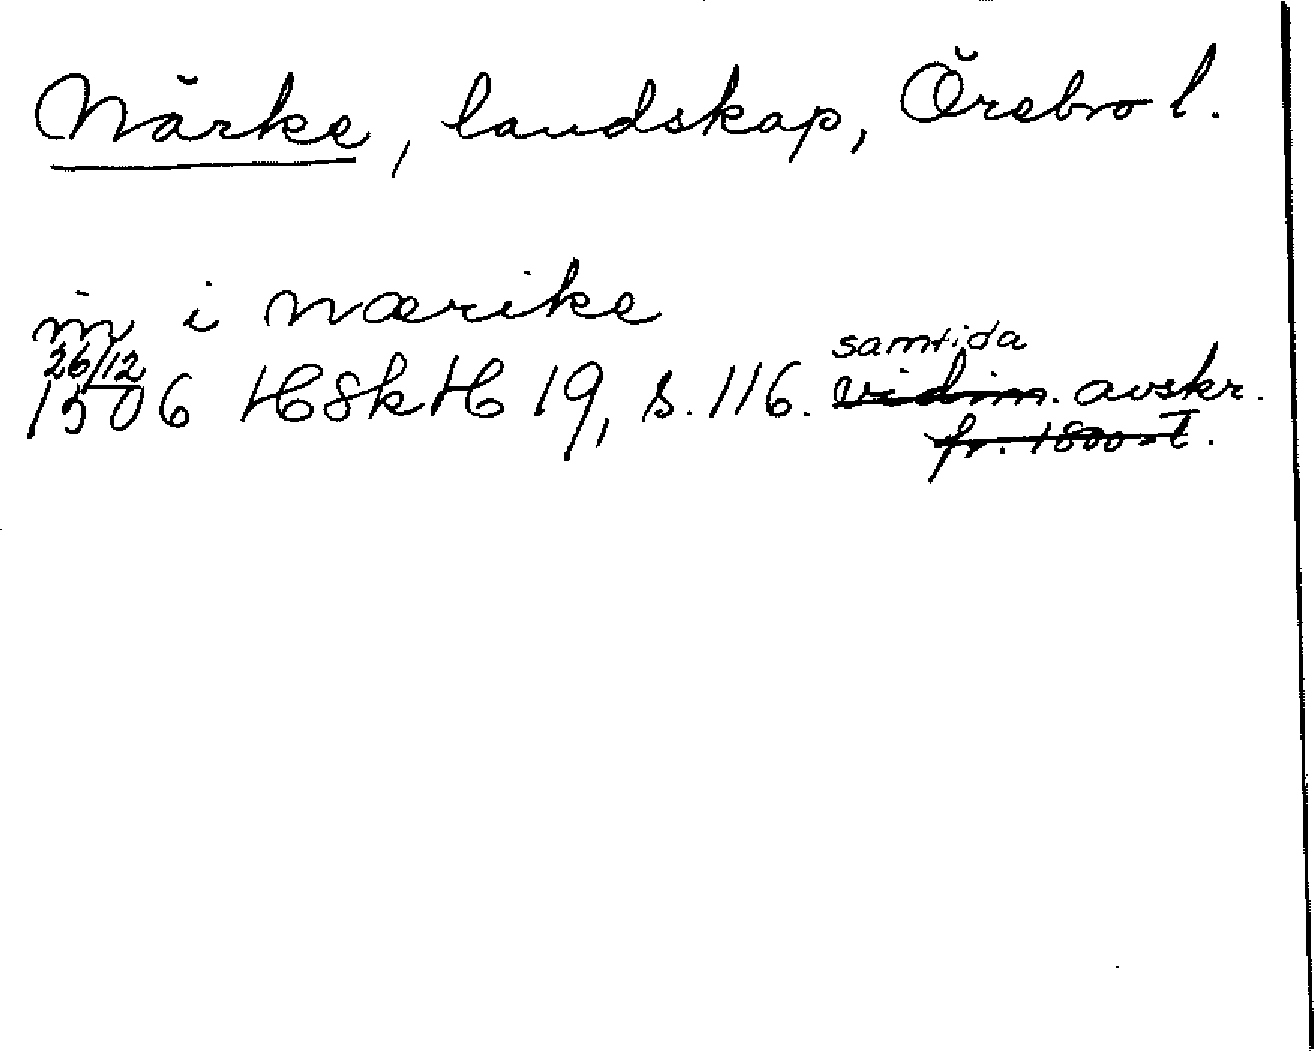 Närke, landskap, Örebro l.
in i nærike
26/12
samtida
1506 HSkH 19, s. 116. vidim. avskr.
fr. 1800-t.